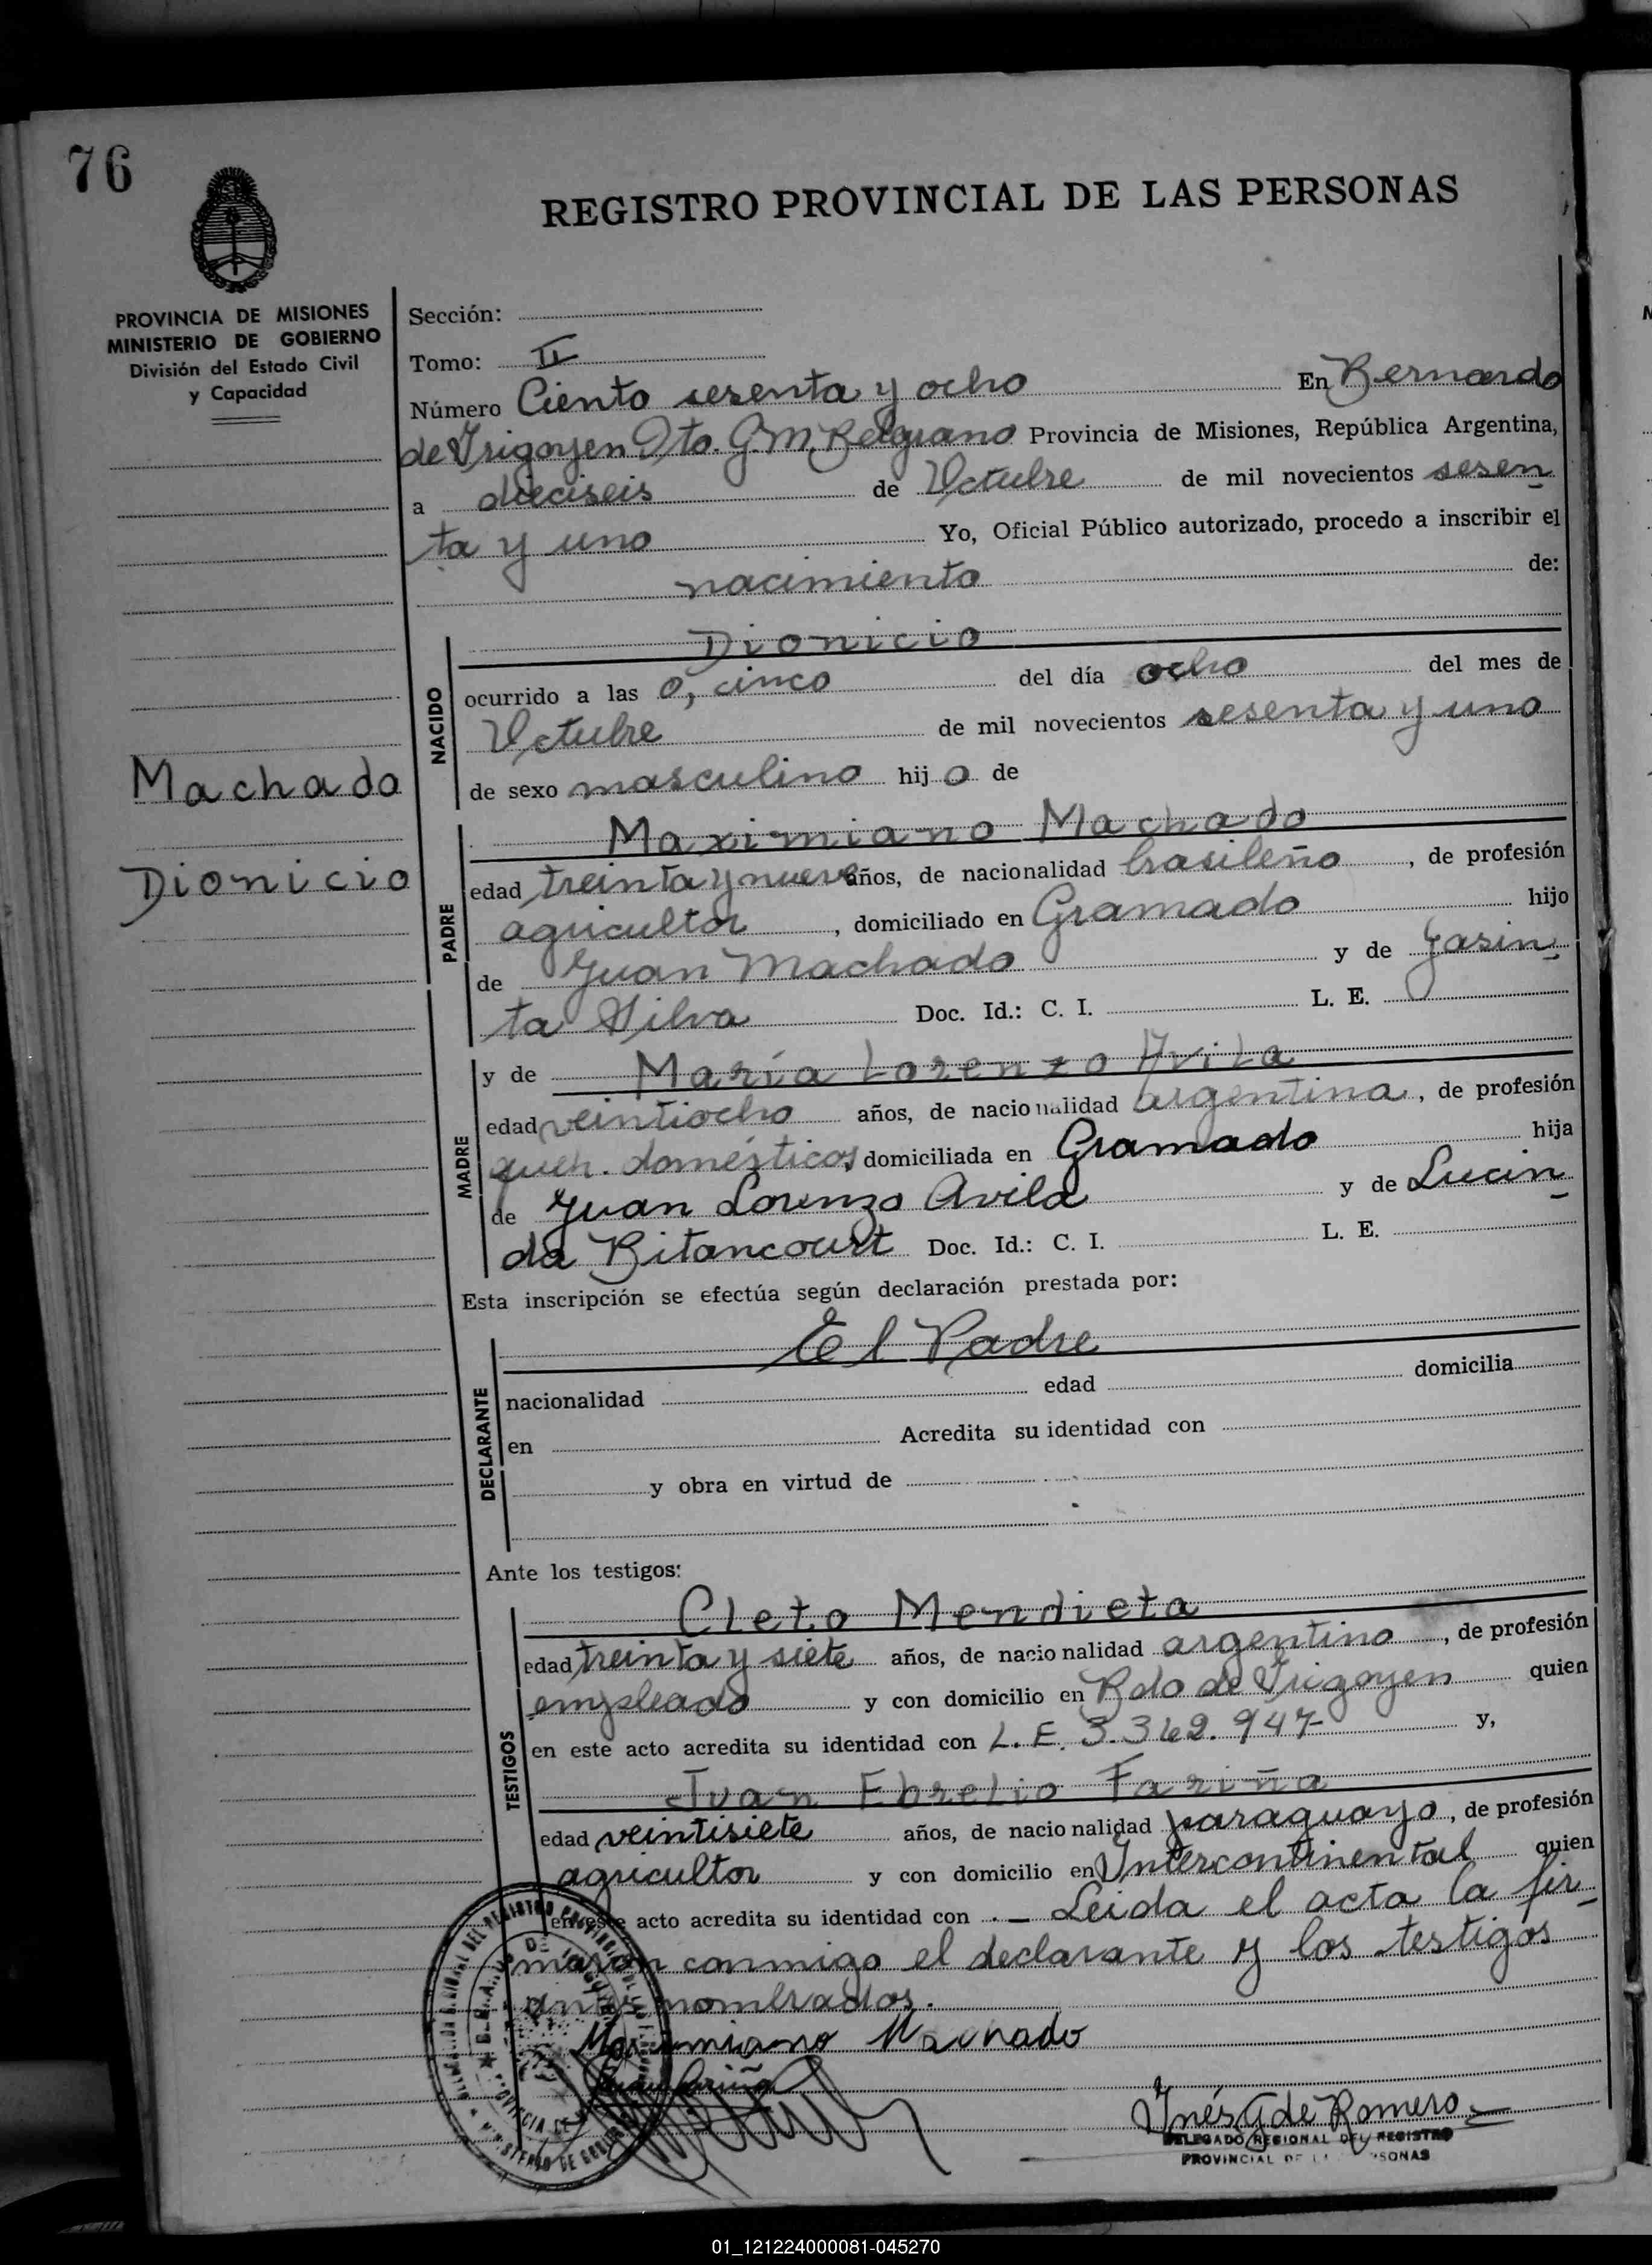 76
REGISTRO PROVINCIAL DE LAS PERSONAS
PROVINCIA DE MISIONES
MINISTERIO DE GOBIERNO
División del Estado Civil
y Capacidad
Sección:
Tomo: II
Número Ciento sesenta y ocho En Bernardo
de Irigoyen Dto. G.M. Belgrano Provincia de Misiones, República Argentina,
a dieciseis de Octubre de mil novecientos sesen
ta y uno Yo, Oficial Público autorizado, procedo a inscribir el
nacimiento de:
Dionicio
NACIDO
ocurrido a las 0, cinco del día ocho del mes de
Octubre de mil novecientos sesenta y uno
de sexo masculino hijo de
Machado
Dionicio
Maximiano Machado
PADRE
edad treinta y nueve años, de nacionalidad brasileño, de profesión
agricultor, domiciliado en Gramado hijo
de Juan Machado y de Jasin
ta Silva Doc. Id.: C. I. L. E.
y de María Lorenzo Avila
MADRE
edad veintiocho años, de nacionalidad argentina, de profesión
queh. domésticos domiciliada en Gramado hija
de Juan Lorenzo Avila y de Lucin
da Bitancourt Doc. Id.: C. I. L. E.
Esta inscripción se efectúa según declaración prestada por:
El Padre
DECLARANTE
nacionalidad edad domicilia
en Acredita su identidad con
y obra en virtud de
Ante los testigos:
Cleto Mendieta
TESTIGOS
edad treinta y siete años, de nacionalidad argentino, de profesión
empleado y con domicilio en Bdo de Irigoyen quien
en este acto acredita su identidad con L.E. 3.362.947 y,
Juan Ebrelio Fariña
edad veintisiete años, de nacionalidad paraguayo, de profesión
agricultor y con domicilio en Intercontinental quien
en este acto acredita su identidad con . _ Leida el acta la fir
maron conmigo el declarante y los testigos
antes nombrados.
Maximiano Machado
Juan Fariña
Inés G de Romero
DELEGADO REGIONAL DEL REGISTRO
PROVINCIAL DE LAS PERSONAS
01_121224000081-045270